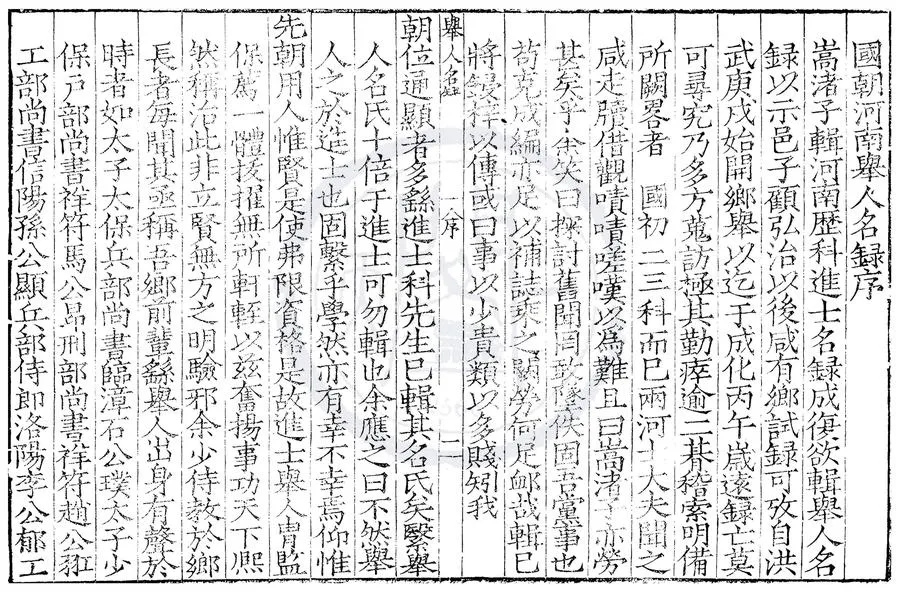 國朝河南舉人名錄序
嵩渚子輯河南歷科進士名錄成復欲輯舉人名
録以示邑子顧弘治以後咸有鄉試録可攷自洪
武庚戌始開鄉舉以迄于成化丙午歲遠録亡莫
可尋究乃多方蒐訪極其勤瘁逾二朞稽索明備
所闕畧者 國初二三科而已兩河士大夫聞之
咸走牘借觀嘖嘖嗟嘆以為難且曰嵩渚子亦勞
甚矣乎余笑曰探討舊聞罔致墜佚固吾黨事也
苟克成編亦足以補誌乘之闕勞何足卹哉輯已
將鋟梓以傳或曰事以少貴類以多賤矧我
舉人名錄
序
二
朝位通顯者多繇進士科先生已輯其名氏矣繄舉
人名氏十倍于進士可勿輯也余應之曰不然舉
人之於造士也固繫乎學然亦有幸不幸焉仰惟
先朝用人惟賢是使弗限資格是故進士舉人胄監
保薦一體拔擢無所軒輊以兹奮揚事功天下熙
然稱治此非立賢無方之明驗邪余少侍教於鄉
長者每聞其亟稱吾鄉前輩繇舉人出身有聲於
時者如太子太保兵部尚書臨漳石公璞太子少
保戸部尚書祥符馬公昂刑部尚書祥符趙公羾
工部尚書信陽孫公顯兵部侍郎洛陽李公郁工